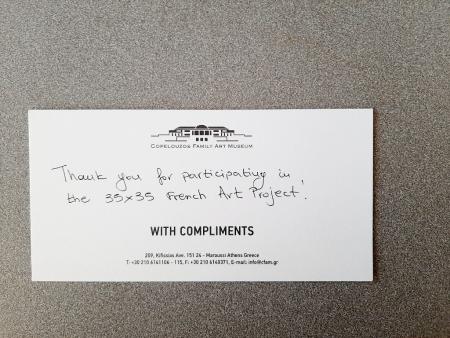 COPELOUZOS FAMILY ART MUSEUM
Thank you for participating in
the 35x35 French Art Project!
WITH COMPLIMENTS
209, Kifissias Ave. 151 24 - Maroussi Athens Greece
T: +30 210 6141106 - 115, F: +30 210 6140371, E-mail: info@cfam.gr